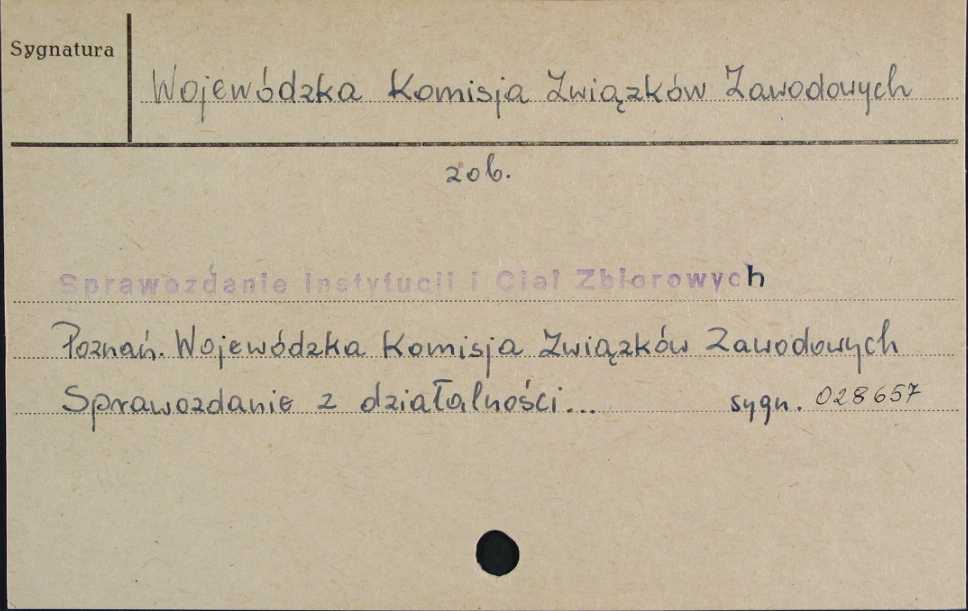 Sygnatura
Wojewódzka Komisja Związków Zawodowych
zob.
Sprawozdanie Instytucji i Ciał Zbiorowych
Poznań. Wojewódzka Komisja Związków Zawodowych
Sprawozdanie z działalności... sygn. 028657